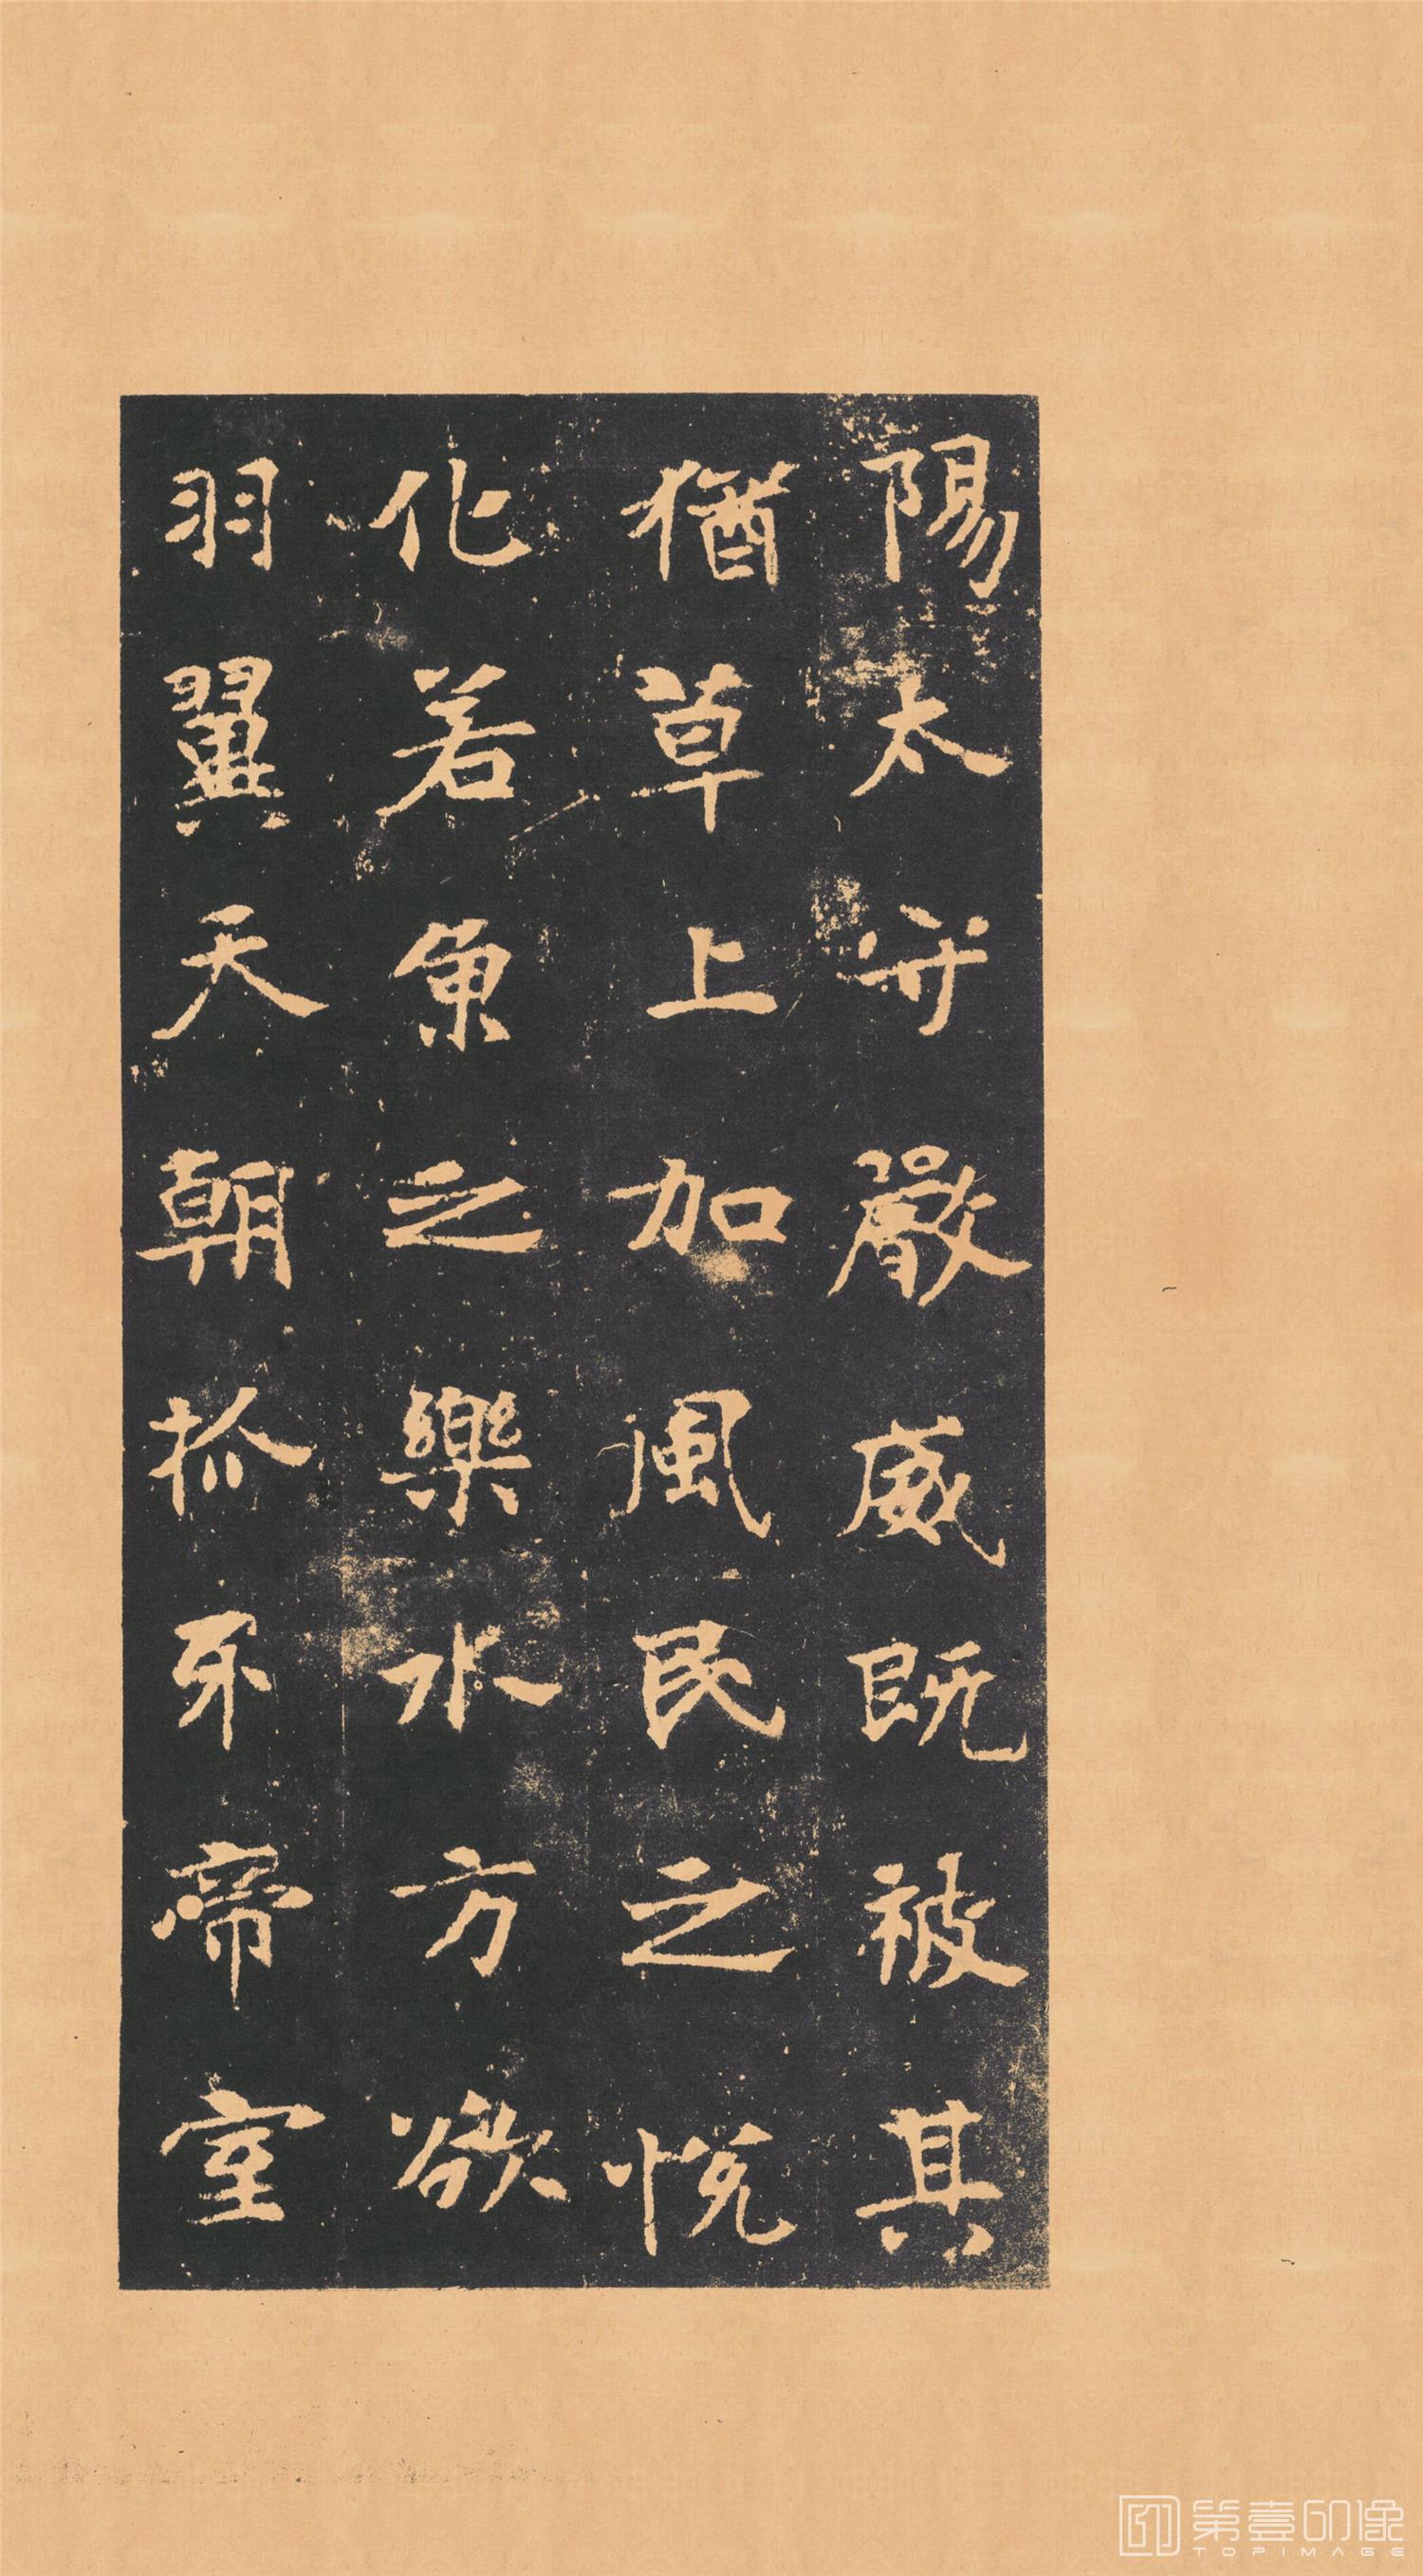 陽太守嚴威既被其
猶草上加風民之悅
化若魚之樂水方欲
羽翼天朝抓牙帝室
第壹印像
TOPIMAGE